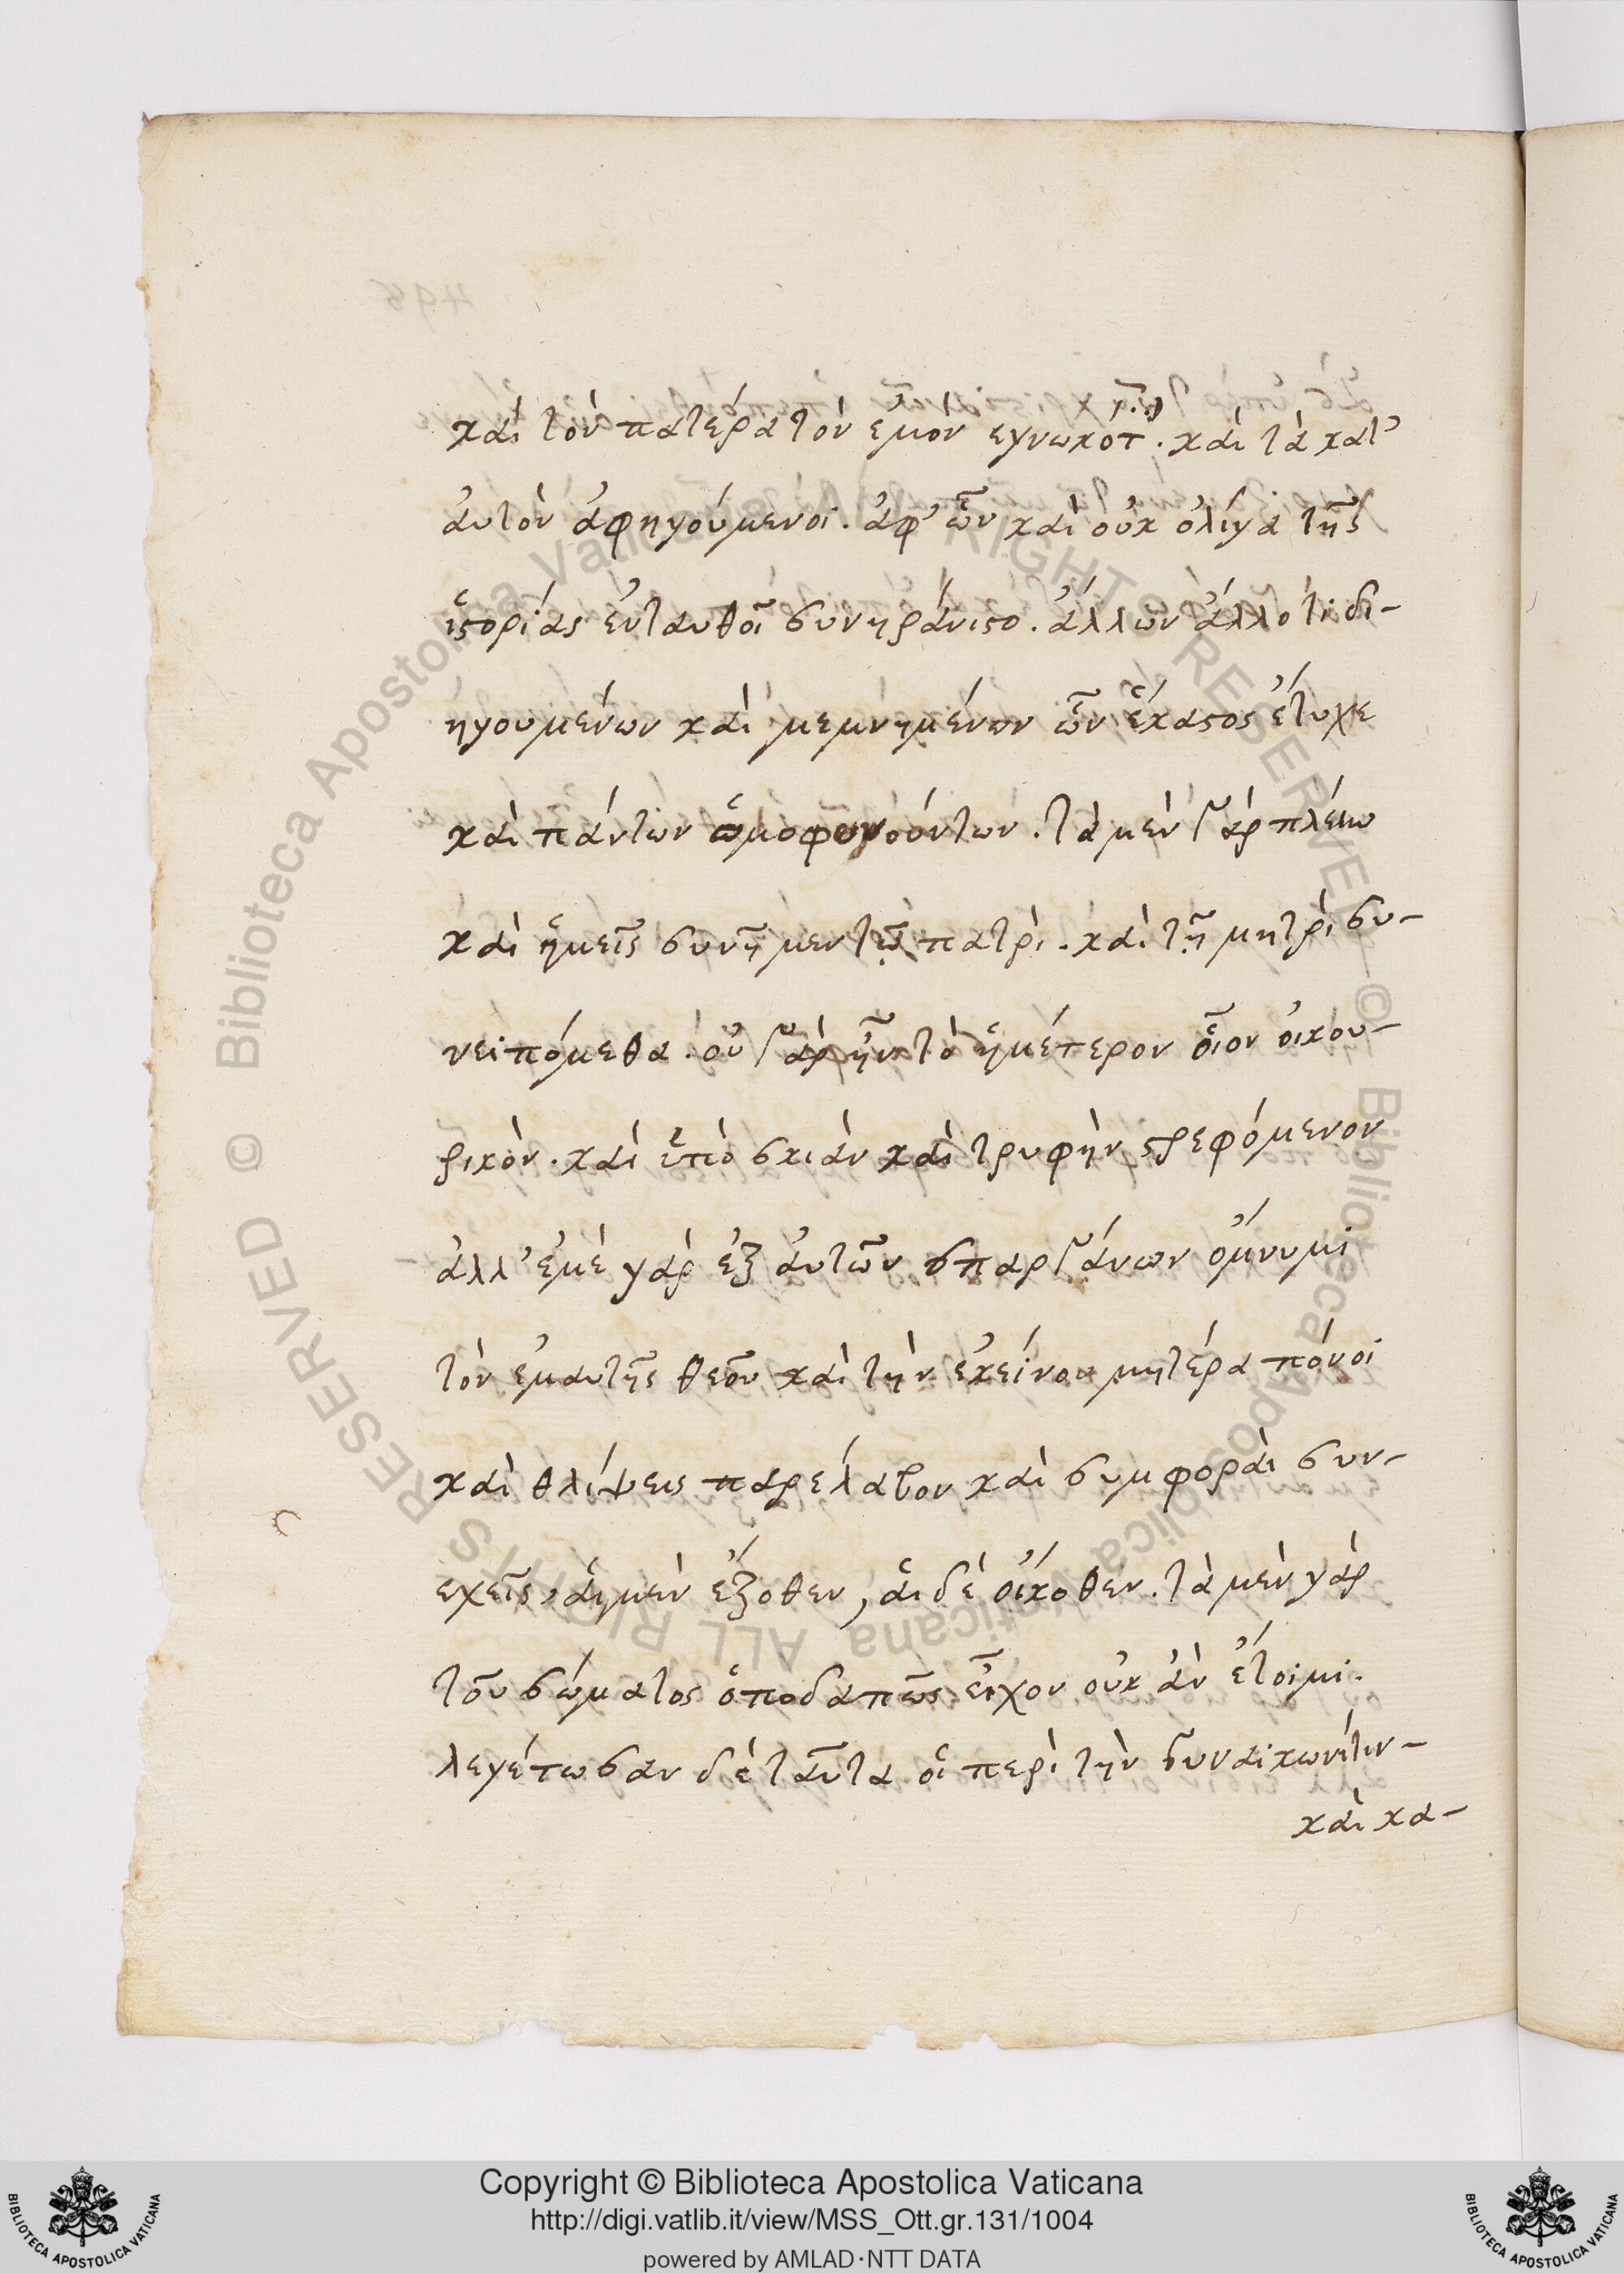 καὶ τὸν πατέρα τὸν ἐμὸν εγνωκότ. καὶ τὰ κατ'
ἀυτὸν ἀφηγούμενοι. ἀφ' ὧν καὶ οὐκ ὀλίγα τῆς
ἱϛορίας ἐνταυθοῖ συνηράνιϛο. ἄλλων ἄλλο τὶ δι-
ηγουμένων καὶ μεμνημένων ὧν ἕκαϛος ἔτυχε
καὶ πάντων ὡμοφονούντων. τὰ μὲν γὰρ πλείω
καὶ ἡμεῖς συνῆμεν τῷ πατρὶ. καὶ τῇ μητρὶ συ-
νειπόμεθα. οὐ γὰρ ἦν τὸ ἡμέτερον οἷον οἰκου-
ρικὸν. καὶ ὑπὸ σκιὰν καὶ τρυφὴν ϛρεφόμενον
ἀλλ' ἐμὲ γὰρ ἐξ ἀυτῶν σπαργάνων ὄμνυμι
τὸν ἐμαυτῆς θεὸν καὶ τὴν ἐκείνου μητέρα πόνοι
καὶ θλίψεις παρέλαβον καὶ συμφοραὶ συν-
εχεῖς, ἁι μὲν ἔξοθεν, ἁι δὲ οἴκοθεν. τὰ μὲν γὰρ
τοῦ σώματος ὁποδαπῶς εἶχον οὐκ ἂν ἔτοιμι.
λεγέτωσαν δὲ ταῦτα οἱ περὶ τὴν γυναικωνίτιν-
καὶ κα-
Copyright © Biblioteca Apostolica Vaticana
http://digi.vatlib.it/view/MSS_Ott.gr.131/1004
powered by AMLAD·NTT DATA
BIBLIOTECA APOSTOLICA VATICANA
BIBLIOTECA APOSTOLICA VATICANA
© Biblioteca Apostolica Vaticana ALL RIGHTS RESERVED © Biblioteca Apostolica Vaticana ALL RIGHTS RESERVED